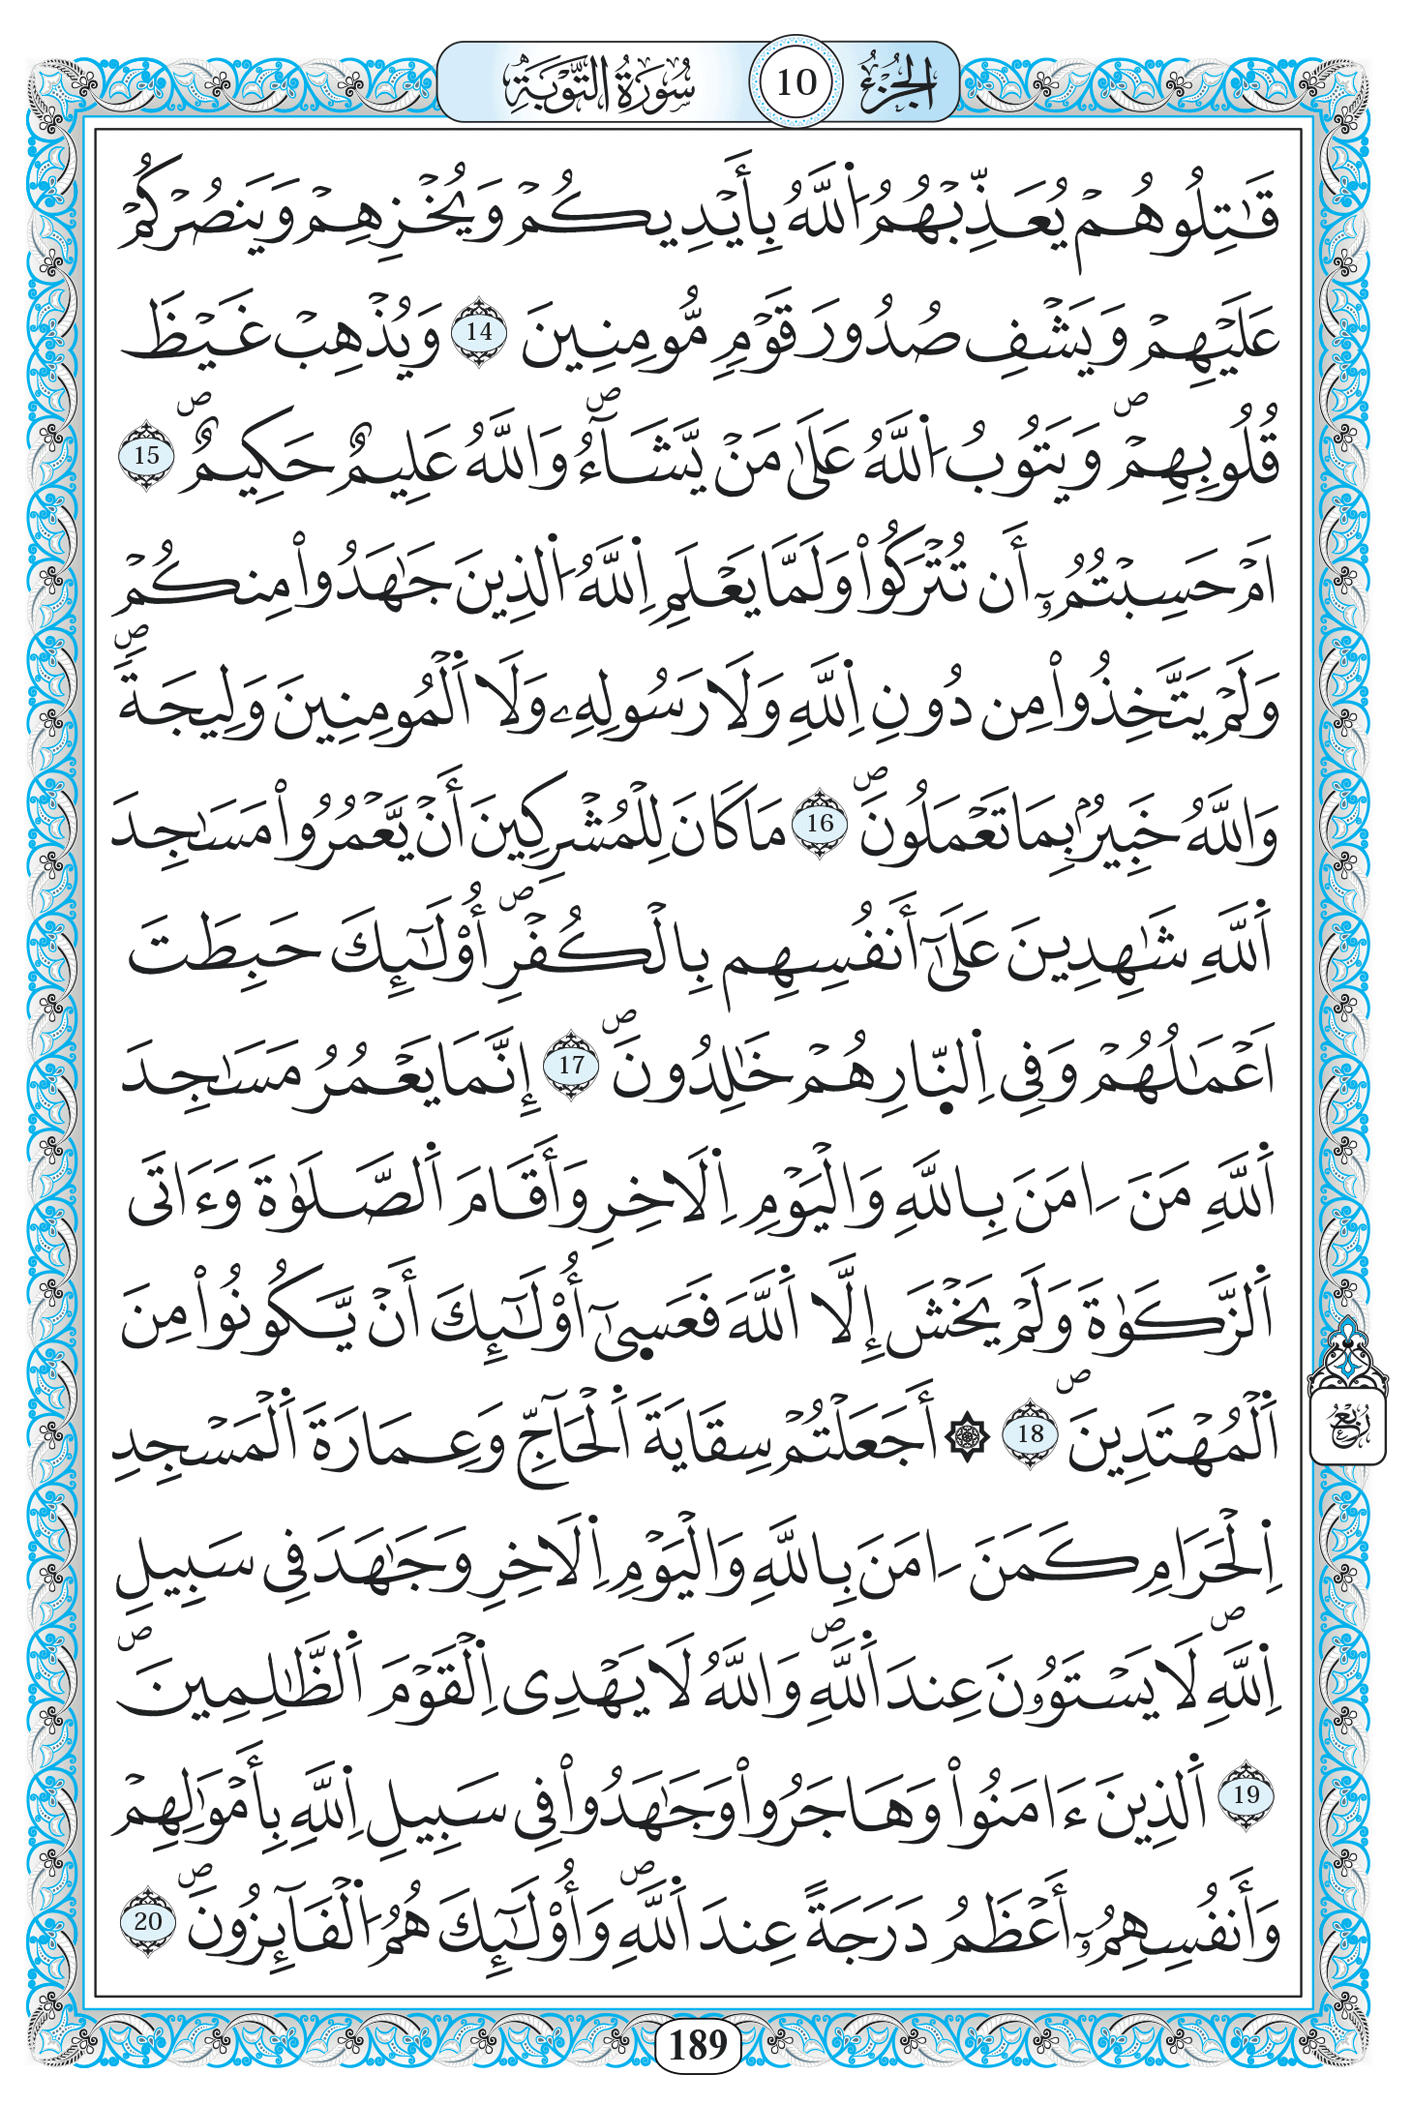 الجزء 10 سورة التوبة
قَٰتِلُوهُمْ يُعَذِّبْهُمُ اُ۬للَّهُ بِأَيْدِيكُمْ وَيُخْزِهِمْ وَيَنصُرْكُمْ
عَلَيْهِمْ وَيَشْفِ صُدُورَ قَوْمٍ مُّومِنِينَ 14 وَيُذْهِبْ غَيْظَ
قُلُوبِهِمْۖ وَيَتُوبُ اُ۬للَّهُ عَلَىٰ مَنْ يَّشَآءُۖ وَاللَّهُ عَلِيمٌ حَكِيمٌۖ 15
اَمْ حَسِبْتُمُۥٓ أَن تُتْرَكُواْ وَلَمَّا يَعْلَمِ اِ۬للَّهُ اُ۬لذِينَ جَٰهَدُواْ مِنكُمْ
وَلَمْ يَتَّخِذُواْ مِن دُونِ اِ۬للَّهِ وَلَا رَسُولِهِۦ وَلَا اَ۬لْمُومِنِينَ وَلِيجَةٗۖ
وَاللَّهُ خَبِيرُۢ بِمَا تَعْمَلُونَۖ 16 مَا كَانَ لِلْمُشْرِكِينَ أَنْ يَّعْمُرُواْ مَسَٰجِدَ
اَ۬للَّهِ شَٰهِدِينَ عَلَىٰٓ أَنفُسِهِم بِالْكُفْرِۖ أُوْلَٰٓئِكَ حَبِطَتَ
اَعْمَٰلُهُمْ وَفِى اِ۬لنّ۪ارِ هُمْ خَٰلِدُونَۖ 17 إِنَّمَا يَعْمُرُ مَسَٰجِدَ
اَ۬للَّهِ مَنَ اٰمَنَ بِاللَّهِ وَالْيَوْمِ اِ۬لَاخِرِ وَأَقَامَ اَ۬لصَّلَوٰةَ وَءَاتَى
اَ۬لزَّكَوٰةَ وَلَمْ يَخْشَ إِلَّا اَ۬للَّهَ فَعَس۪ىٰٓ أُوْلَٰٓئِكَ أَنْ يَّكُونُواْ مِنَ
اَ۬لْمُهْتَدِينَۖ 18 ۞ أَجَعَلْتُمْ سِقَايَةَ اَ۬لْحَآجِّ وَعِمَارَةَ اَ۬لْمَسْجِدِ
اِ۬لْحَرَامِ كَمَنَ اٰمَنَ بِاللَّهِ وَالْيَوْمِ اِ۬لَاخِرِ وَجَٰهَدَ فِى سَبِيلِ
اِ۬للَّهِۖ لَا يَسْتَوُۥنَ عِندَ اَ۬للَّهِۖ وَاللَّهُ لَا يَهْدِى اِ۬لْقَوْمَ اَ۬لظَّٰلِمِينَۖ
19 اَ۬لذِينَ ءَامَنُواْ وَهَاجَرُواْ وَجَٰهَدُواْ فِى سَبِيلِ اِ۬للَّهِ بِأَمْوَٰلِهِمْ
وَأَنفُسِهِمُۥٓ أَعْظَمُ دَرَجَةً عِندَ اَ۬للَّهِۖ وَأُوْلَٰٓئِكَ هُمُ اُ۬لْفَآئِزُونَۖ 20
ربع
189